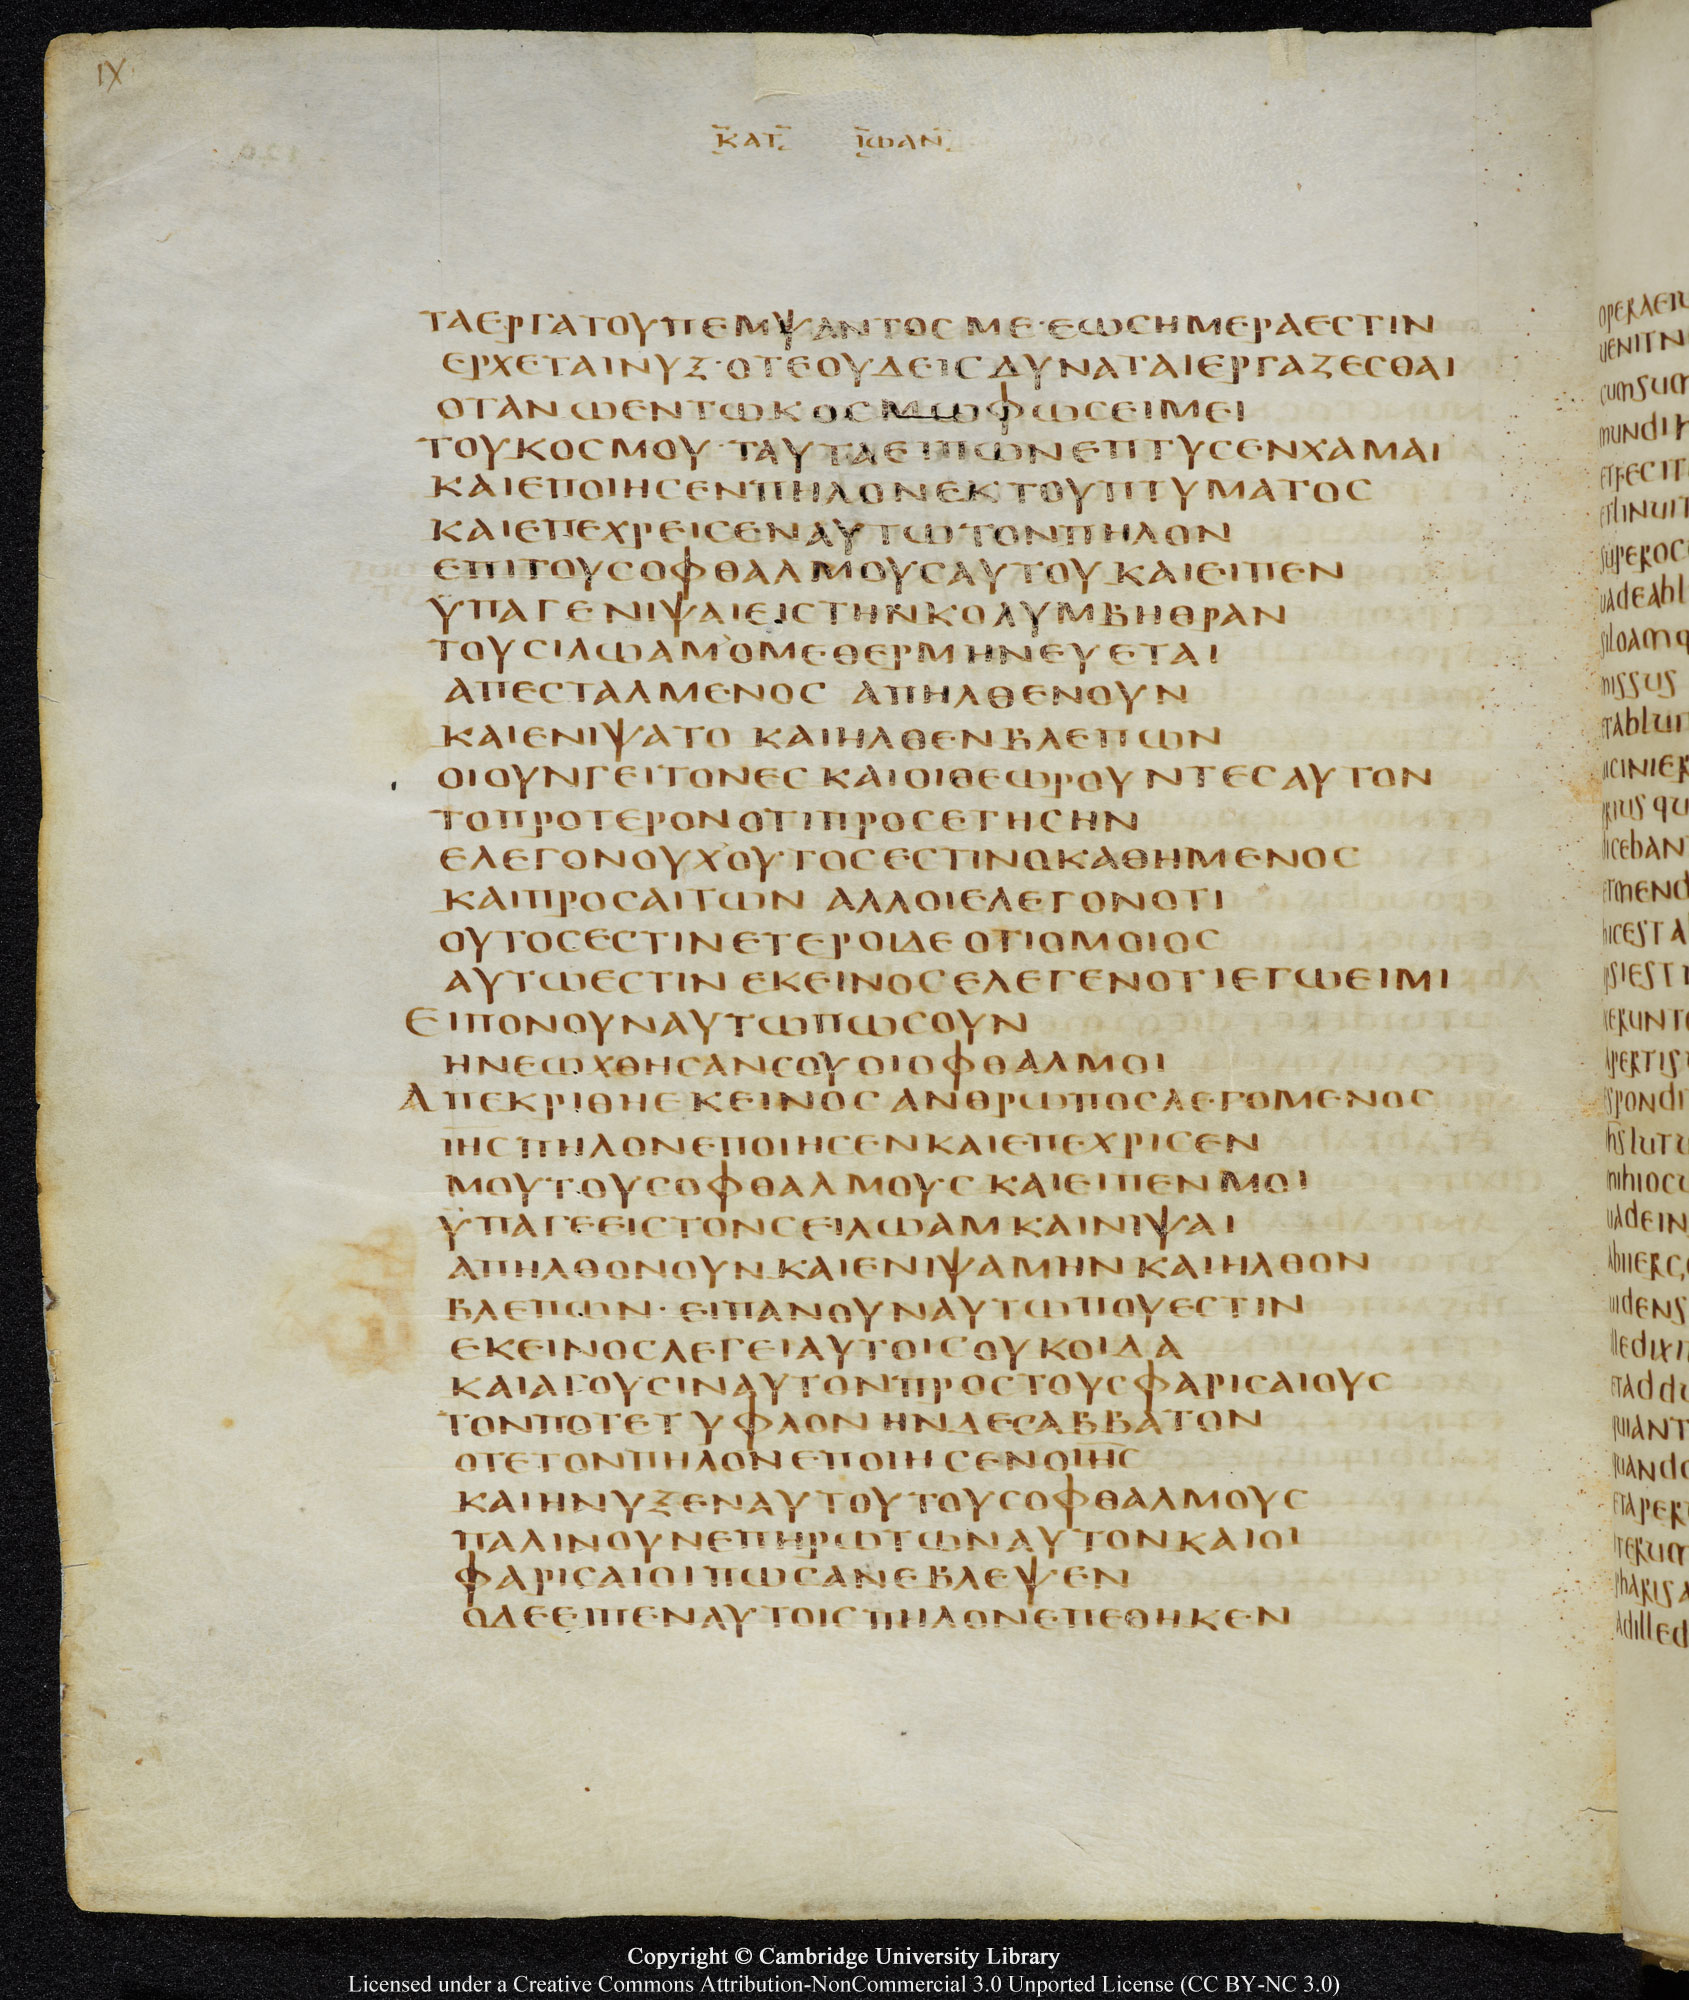 IX
ΚΑΤ ΙΩΑΝ
ΤΑΕΡΓΑΤΟΥΠΕΜΨΑΝΤΟΣ ΜΕ·ΕΩΣΗΜΕΡΑΕΣΤΙΝ
ΕΡΧΕΤΑΙΝΥΞ·ΟΤΕΟΥΔΕΙΣΔΥΝΑΤΑΙΕΡΓΑΖΕΣΘΑΙ
ΟΤΑΝΩΕΝΤΩΚΟΣΜΩΦΩΣΕΙΜΕΙ
ΤΟΥΚΟΣΜΟΥ·ΤΑΥΤΑΕΙΠΩΝΕΠΤΥΣΕΝΧΑΜΑΙ
ΚΑΙΕΠΟΙΗΣΕΝΠΗΛΟΝΕΚΤΟΥΠΤΥΜΑΤΟΣ
ΚΑΙΕΠΕΧΡΕΙΣΕΝΑΥΤΩΤΟΝΠΗΛΟΝ
ΕΠΙΤΟΥΣΟΦΘΑΛΜΟΥΣΑΥΤΟΥΚΑΙΕΙΠΕΝ
ΫΠΑΓΕΝΙΨΑΙΕΙΣΤΗΝΚΟΛΥΜΒΗΘΡΑΝ
ΤΟΥΣΙΛΩΑΜΟΜΕΘΕΡΜΗΝΕΥΕΤΑΙ
ΑΠΕΣΤΑΛΜΕΝΟΣ ΑΠΗΛΘΕΝΟΥΝ
ΚΑΙΕΝΙΨΑΤΟ ΚΑΙΗΛΘΕΝΒΛΕΠΩΝ
ΟΙΟΥΝΓΕΙΤΟΝΕΣ ΚΑΙΟΙΘΕΩΡΟΥΝΤΕΣΑΥΤΟΝ
ΤΟΠΡΟΤΕΡΟΝΟΤΙΠΡΟΣΕΤΗΣΗΝ
ΕΛΕΓΟΝΟΥΧΟΥΤΟΣΕΣΤΙΝΟΚΑΘΗΜΕΝΟΣ
ΚΑΙΠΡΟΣΑΙΤΩΝ ΑΛΛΟΙΕΛΕΓΟΝΟΤΙ
ΟΥΤΟΣΕΣΤΙΝΕΤΕΡΟΙΔΕΟΤΙΟΜΟΙΟΣ
ΑΥΤΩΕΣΤΙΝ ΕΚΕΙΝΟΣΕΛΕΓΕΝΟΤΙΕΓΩΕΙΜΙ
ΕΙΠΟΝΟΥΝΑΥΤΩΠΩΣΟΥΝ
ΗΝΕΩΧΘΗΣΑΝΣΟΥΟΙΟΦΘΑΛΜΟΙ
ΑΠΕΚΡΙΘΗΕΚΕΙΝΟΣ ΑΝΘΡΩΠΟΣΛΕΓΟΜΕΝΟΣ
ΙΗΣΠΗΛΟΝΕΠΟΙΗΣΕΝΚΑΙΕΠΕΧΡΙΣΕΝ
ΜΟΥΤΟΥΣΟΦΘΑΛΜΟΥΣ ΚΑΙΕΙΠΕΝΜΟΙ
ΫΠΑΓΕΕΙΣΤΟΝΣΕΙΛΩΑΜΚΑΙΝΙΨΑΙ
ΑΠΗΛΘΟΝΟΥΝΚΑΙΕΝΙΨΑΜΗΝΚΑΙΗΛΘΟΝ
ΒΛΕΠΩΝ·ΕΙΠΑΝΟΥΝΑΥΤΩΠΟΥΕΣΤΙΝ
ΕΚΕΙΝΟΣΛΕΓΕΙΑΥΤΟΙΣΟΥΚΟΙΔΑ
ΚΑΙΑΓΟΥΣΙΝΑΥΤΟΝΠΡΟΣΤΟΥΣΦΑΡΙΣΑΙΟΥΣ
ΤΟΝΠΟΤΕΤΥΦΛΟΝ ΗΝΔΕΣΑΒΒΑΤΟΝ
ΟΤΕΤΟΝΠΗΛΟΝΕΠΟΙΗΣΕΝΟΙΗΣ
ΚΑΙΗΝΥΞΕΝΑΥΤΟΥΤΟΥΣΟΦΘΑΛΜΟΥΣ
ΠΑΛΙΝΟΥΝΕΠΗΡΩΤΩΝΑΥΤΟΝΚΑΙΟΙ
ΦΑΡΙΣΑΙΟΙΠΩΣΑΝΕΒΛΕΨΕΝ
ΟΔΕΕΙΠΕΝΑΥΤΟΙΣΠΗΛΟΝΕΠΕΘΗΚΕΝ
Copyright © Cambridge University Library
Licensed under a Creative Commons Attribution-NonCommercial 3.0 Unported License (CC BY-NC 3.0)